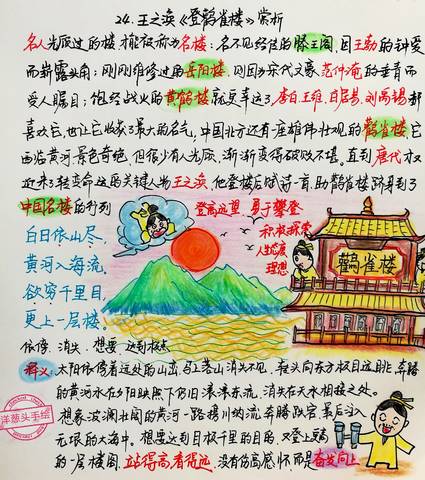 24.王之涣《登鹳雀楼》赏析
名人光顾过的楼才能被称为名楼:名不见经传的滕王阁,因王勃的钟爱
而崭露头角;刚刚维修过的岳阳楼,则因为宋代文豪范仲淹的垂青而
受人瞩目;饱经战火的黄鹤楼就更幸运了,李白王维,白居易,刘禹锡都
喜欢它,也让它收获了最大的名气;中国北方还有一座雄伟壮观的鹳雀楼它
西临黄河,景色奇绝,但很少有人光顾,渐渐变得破败不堪。直到唐代才又
迎来了转变命运的关键人物王之涣,他登楼后赋诗一首,助鹳雀楼跻身到了
中国名楼的行列
登高远望,勇于攀登
积极探索
人生态度
理想
白日依山尽,
黄河入海流,
欲穷千里目,
更上一层楼。
鹳雀楼
依傍 消失 想要 达到极点
释义:太阳依傍着远处的山峦,马上落山消失不见,在头向东方极目远眺,奔腾
的黄河水在夕阳映照下仍旧滚滚东流,消失在天水相接之处。
想象波澜壮阔的黄河一路携川纳流,奔腾跌宕,最后汇入
无垠的大海中。想要达到目极千里的目的,又登上更高
的一层楼阁,站得高看得远,没有伤高感怀而是奋发向上
洋葱头手绘